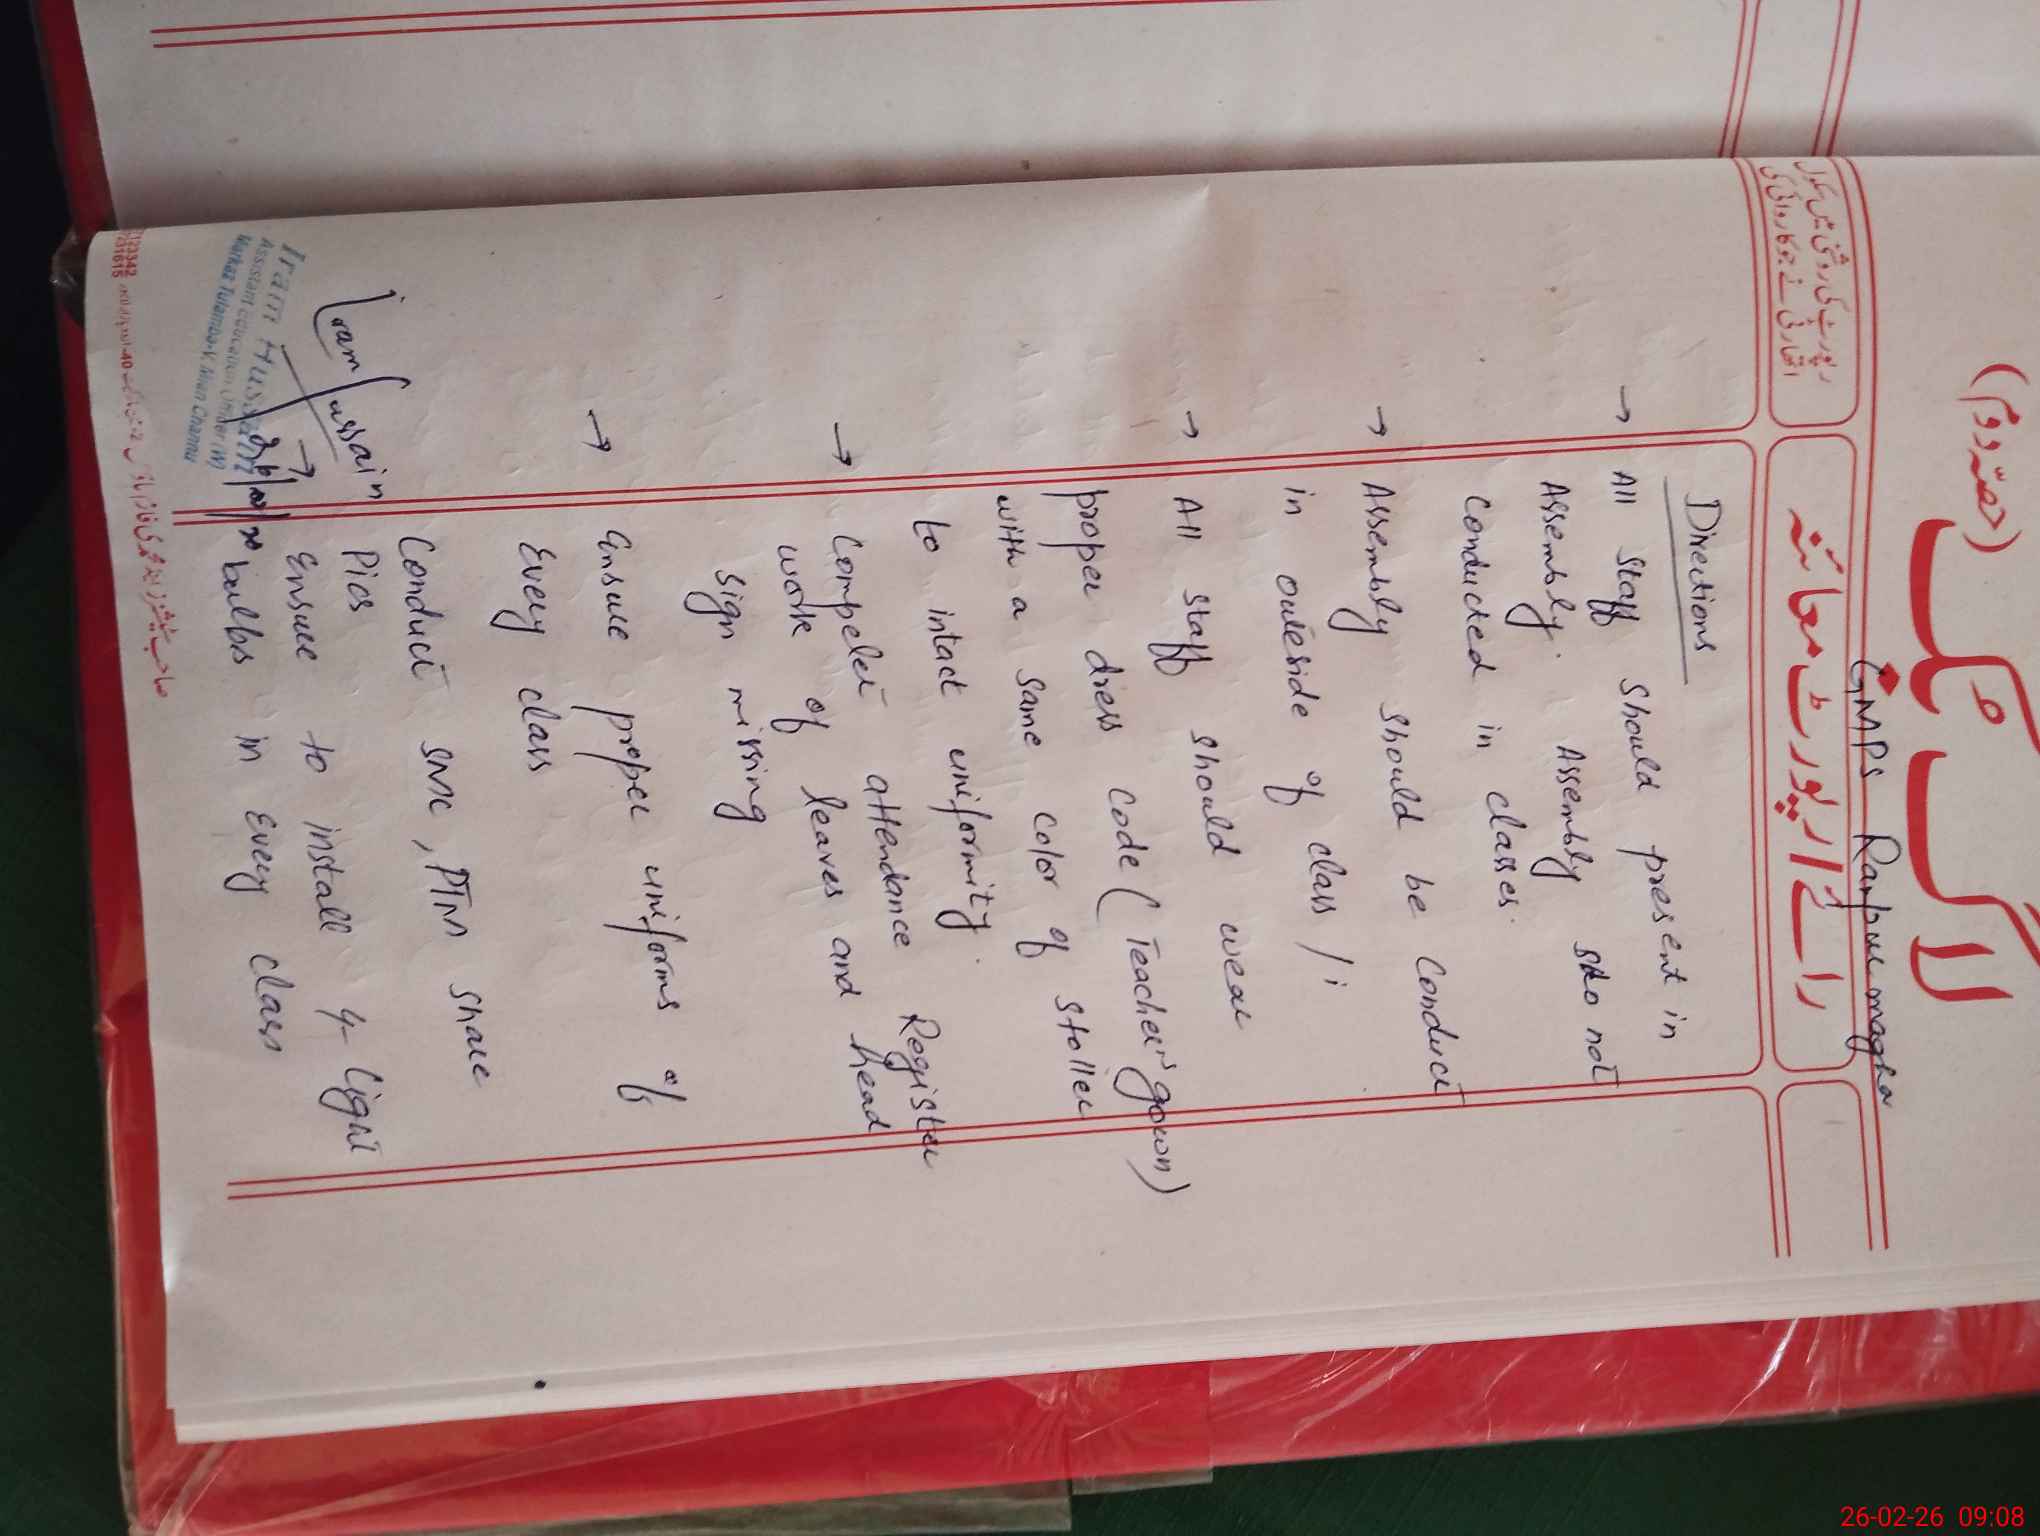 لاگ بک
(حصہ دوم)
GMPS Rampur magha
رائے / رپورٹ معائنہ
رپورٹ کی روشنی میں سکول
اتھارٹی نے جو کاروائی کی
Directions
→ All staff should present in
Assembly. Assembly do not
conducted in classes.
→ Assembly should be conduct
in outside of class / i
→ All staff should wear
proper dress code (Teacher's gown)
with a same color of stoller
to intact uniformity.
→ Compelet attendance Register
work of leaves and head
sign missing
→ Ensure proper uniforms of
Every class
Conduct SMC, PTM share
Pics
→ Ensure to install 4 light
bulbs in every class
Iram Hussain
Iram Hussain
Assistant Education Officer (W)
Markaz Tulamba-V, Mian Channu
26-02-26 09:08